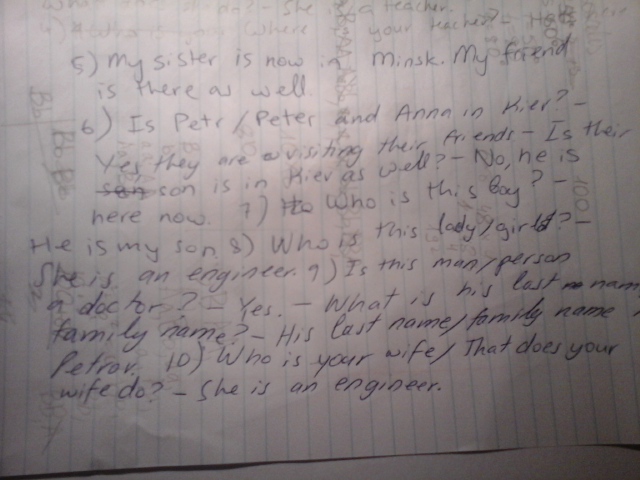 She is a teacher.
Where your teacher? - He
5) My sister is now in Minsk. My friend
is there as well.
6) Is Petr/Peter and Anna in Kiev? -
Yes, they are visiting their friends - Is their
son is in Kiev as well? - No, he is
here now. 7) Who is this boy? -
He is my son. 8) Who is this lady/girl? -
She is an engineer. 9) Is this man/person
a doctor? - Yes. - What is his last nam
family name? - His last name/family name
Petrov. 10) Who is your wife/That does your
wife do? - She is an engineer.